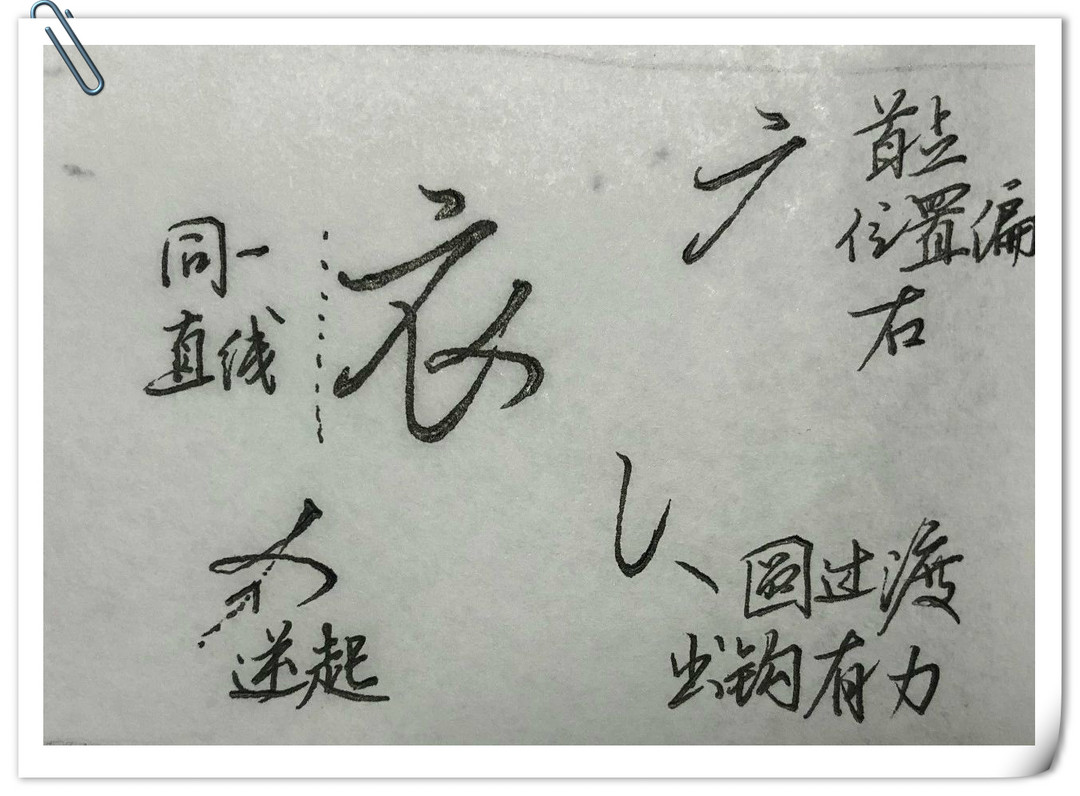 同一
直线
衣
首点
位置偏
右
逆起
圆过渡
出钩有力